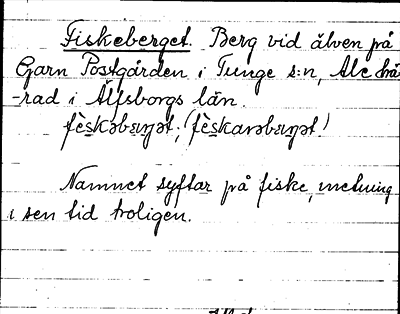 Fiskeberget. Berg vid älven på
Garn Postgården i Tunge s:n, Ale hä
-rad i Älfsborgs län.
Namnet syftar på fiske, metning
i sen tid troligen.